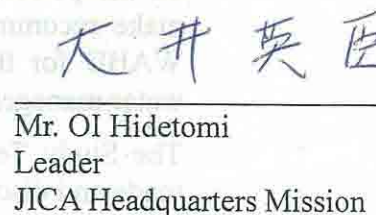 大井英臣
Mr. OI Hidetomi
Leader
JICA Headquarters Mission